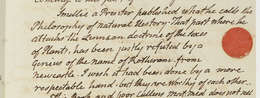 Smellie a Printer published what he calls the
Philosophy of natural History. That part where he
attacks the Linnæan doctrine of the sexes
of Plants, has been justly refuted by a
Genius of the name of Rotheram from
newcastle. I wish it had been done by a more
respectable hand, but they are worthy of each other.
poor Cullens
does not